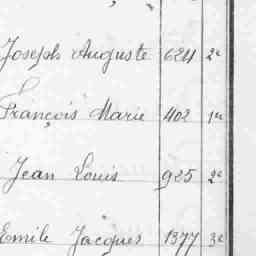 Joseph Auguste 624 2e
François Marie 402 1re
Jean Louis 925 2e
Emile Jacques 1377 3e